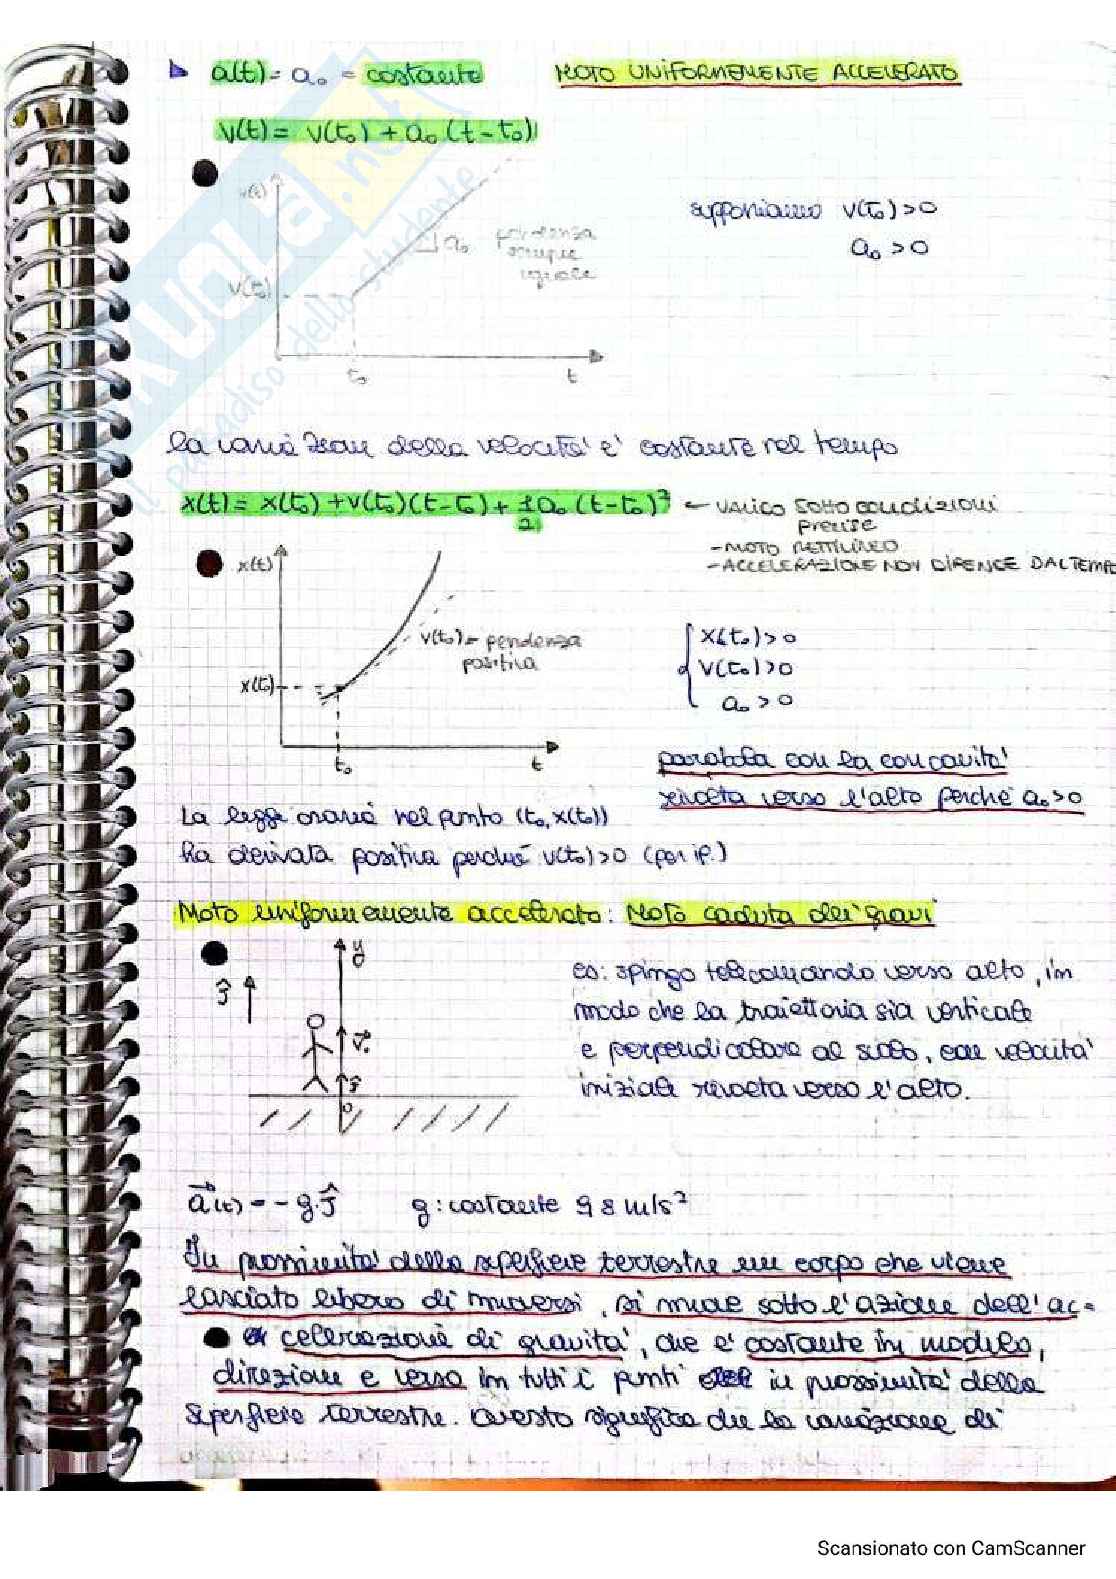 a(t) = a₀ = costante MOTO UNIFORMEMENTE ACCELERATO
v(t) = v(t₀) + a₀ (t-t₀)
v(t)
supponiamo v(t₀)>0
a₀ >0
a₀ pendenza
sempre
uguale
v(t₀)
t₀ t
la variazione della velocità è costante nel tempo
x(t) = x(t₀) + v(t₀)(t-t₀) + 1/2 a₀ (t-t₀)² ← VALIDO SOTTO CONDIZIONI
precise
- MOTO RETTILINEO
- ACCELERAZIONE NON DIPENDE DAL TEMPO
x(t)
v(t₀) = pendenza
positiva
x(t₀)>0
v(t₀)>0
a₀ >0
x(t₀)
t₀ t
parabola con la concavità
rivolta verso l'alto perché a₀>0
La legge oraria nel punto (t₀, x(t₀))
ha derivata positiva perché v(t₀)>0 (per ip.)
Moto uniformemente accelerato: Moto caduta dei gravi
y
v₀
o
es: spingo telecomando verso alto, in
modo che la traiettoria sia verticale
e perpendicolare al suolo, con velocità
iniziale rivolta verso l'alto.
a(t) = -g·ĵ g: costante 9,8 m/s²
In prossimità della superficie terrestre un corpo che viene
lasciato libero di muoversi, si muove sotto l'azione dell'ac=
celerazione di gravità, che è costante in modulo,
direzione e verso in tutti i punti in prossimità della
superficie terrestre. Questo significa che la variazione di
Skuola.net
il paradiso dello studente
Scansionato con CamScanner